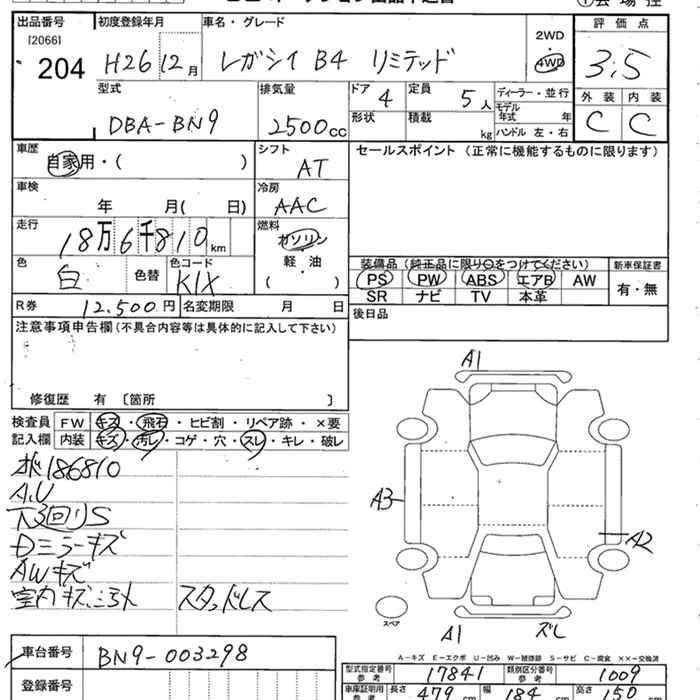 出品番号 初度登録年月 車名・グレード 評価点
[2066]
204 H26 12月 レガシィ B4 リミテッド 2WD・4WD 3.5
型式 排気量 ドア 4 定員 5人 ディーラー・並行 外装 内装
DBA-BN9 2500cc 形状 積載 kg モデル年式 年 ハンドル 左・右 C C
車歴 自家用・( ) シフト AT セールスポイント (正常に機能するものに限ります)
車検 年 月( 日) 冷房 AAC
走行 18万6千810km 燃料 ガソリン 軽・油 ( )
色 白 色替 色コード K1X 装備品(純正品に限り○をつけてください) 新車保証書
PS PW ABS エアB AW 有・無
SR ナビ TV 本革
R券 12,500円 名変期限 月 日 後日品
注意事項申告欄(不具合内容等は具体的に記入して下さい)
修復歴 有 〔箇所 〕
検査員 FW キズ・飛石・ヒビ割・リペア跡・×要
記入欄 内装 キズ・汚レ・コゲ・穴・スレ・キレ・破レ
186810
A.U
下回りS
Dミラーキズ
AWキズ
室内キズ、汚れ スタッドレス
A1
A3
A2
スペア
A1 ズレ
A-キズ E-エクボ U-凹み W-補修跡 S-サビ C-腐食 ××-交換済
車台番号 BN9-003298
登録番号
型式指定番号 参考 17841 類別区分番号 参考 1009
車庫証明用 参考 長さ 479 cm 幅 184 cm 高さ 150 cm